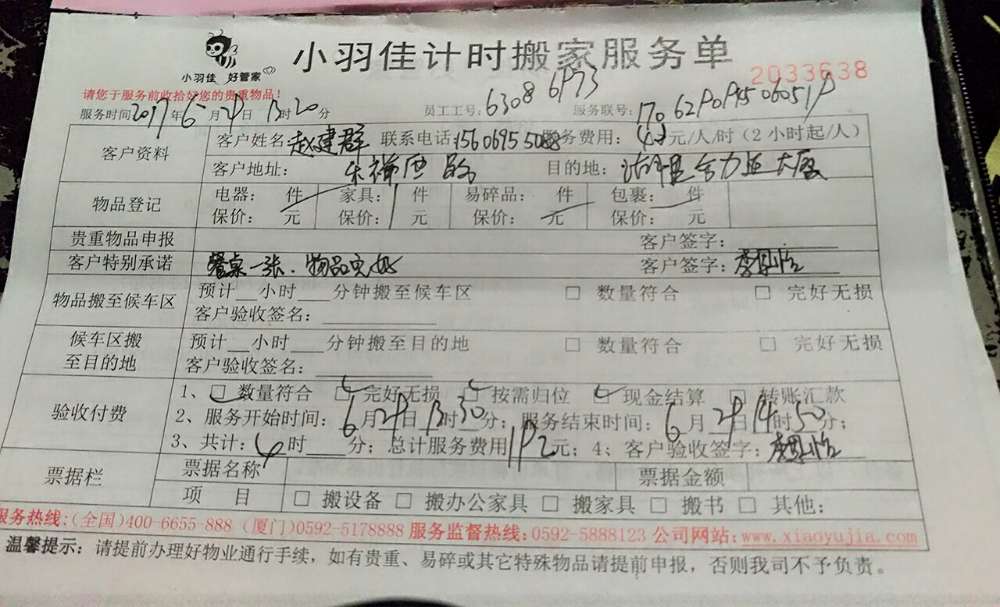 小羽佳 好管家
小羽佳计时搬家服务单
2033638
请您于服务前收拾好您的贵重物品！
服务时间2017年6月 日13时20分 员工工号：6308 6973 服务联号：
客户资料 客户姓名：赵建群 联系电话： 服务费用： 元/人/时（2小时起/人）
客户地址： 目的地： 大厦
物品登记 电器： 件 家具： 件 易碎品： 件 包裹： 件
保价： 元 保价： 元 保价： 元 保价： 元
贵重物品申报 客户签字：
客户特别承诺 餐桌一张、物品完好 客户签字：
物品搬至候车区 预计__小时___分钟搬至候车区 □ 数量符合 □ 完好无损
客户验收签名：
候车区搬至目的地 预计__小时___分钟搬至目的地 □ 数量符合 □ 完好无损
客户验收签名：
验收付费 1、□ 数量符合 □ 完好无损 □ 按需归位 □ 现金结算 □ 转账汇款
2、服务开始时间：6月 日13时30分； 服务结束时间：6月 日 时50分；
3、共计： 时___分；总计服务费用 元；4；客户验收签字：
票据栏 票据名称 票据金额
项 目 □ 搬设备 □ 搬办公家具 □ 搬家具 □ 搬书 □ 其他：
服务热线：(全国)400-6655-888 (厦门)0592-5178888 服务监督热线：0592-5888123 公司网站：www.xiaoyujia.com
温馨提示：请提前办理好物业通行手续，如有贵重、易碎或其它特殊物品请提前申报，否则我司不予负责。